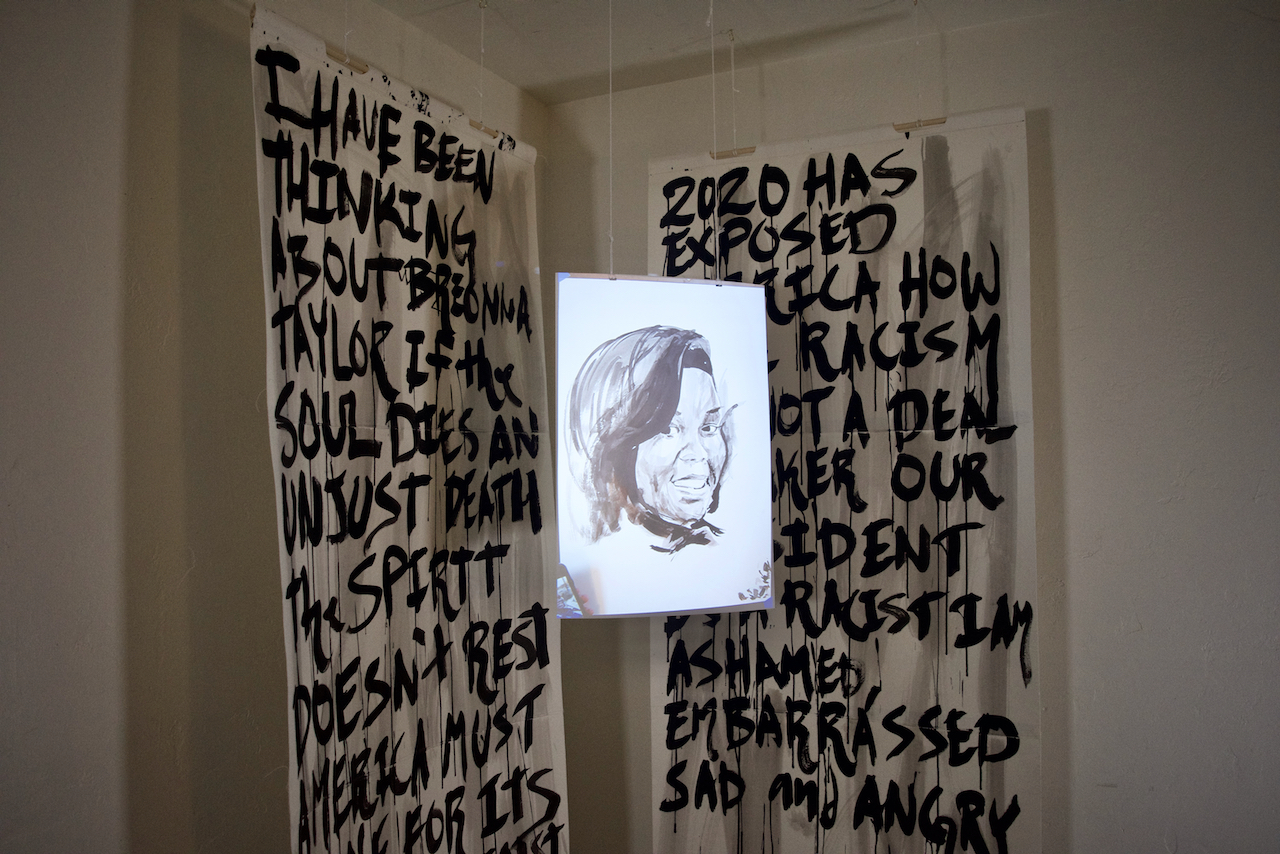 I HAVE BEEN
THINKING
ABOUT BREONNA
TAYLOR If the
SOUL DIES AN
UNJUST DEATH
the SPIRIT
DOESN't REST
AMERICA MUST
FOR ITS
2020 HAS
EXPOSED
HOW
RACISM
A DEAL
OUR
RACIST I AM
ASHAMED,
EMBARRASSED
SAD and ANGRY